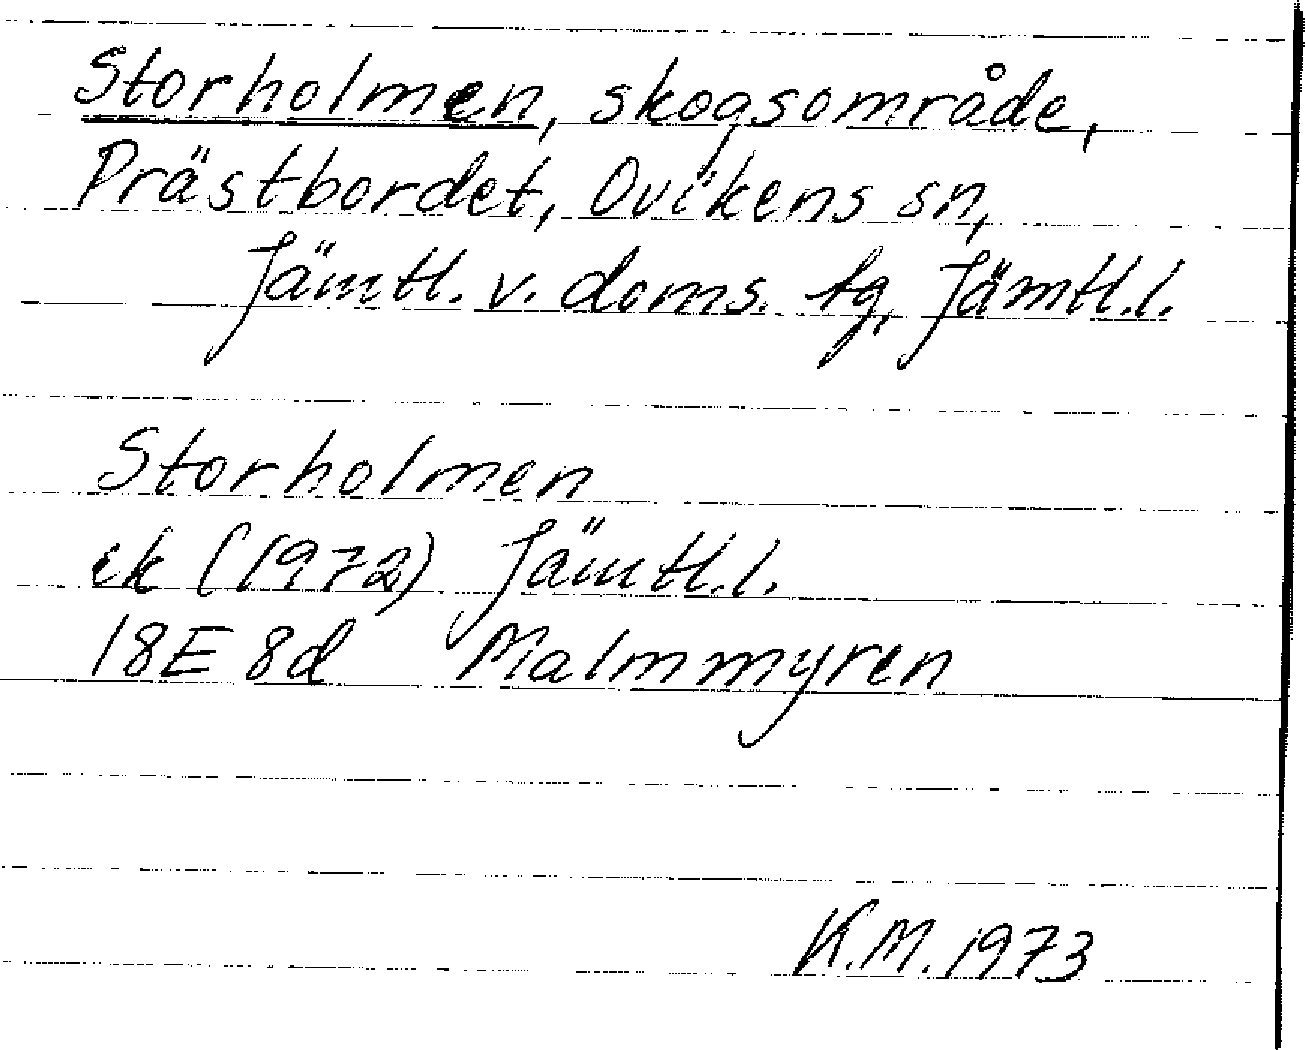 Storholmen, skogsområde,
Prästbordet, Ovikens sn,
Jämtl. v. doms. tg, Jämtl.l.
Storholmen
ek (1972) Jämtl.l.
18E 8d Malmmyren
K.M. 1973